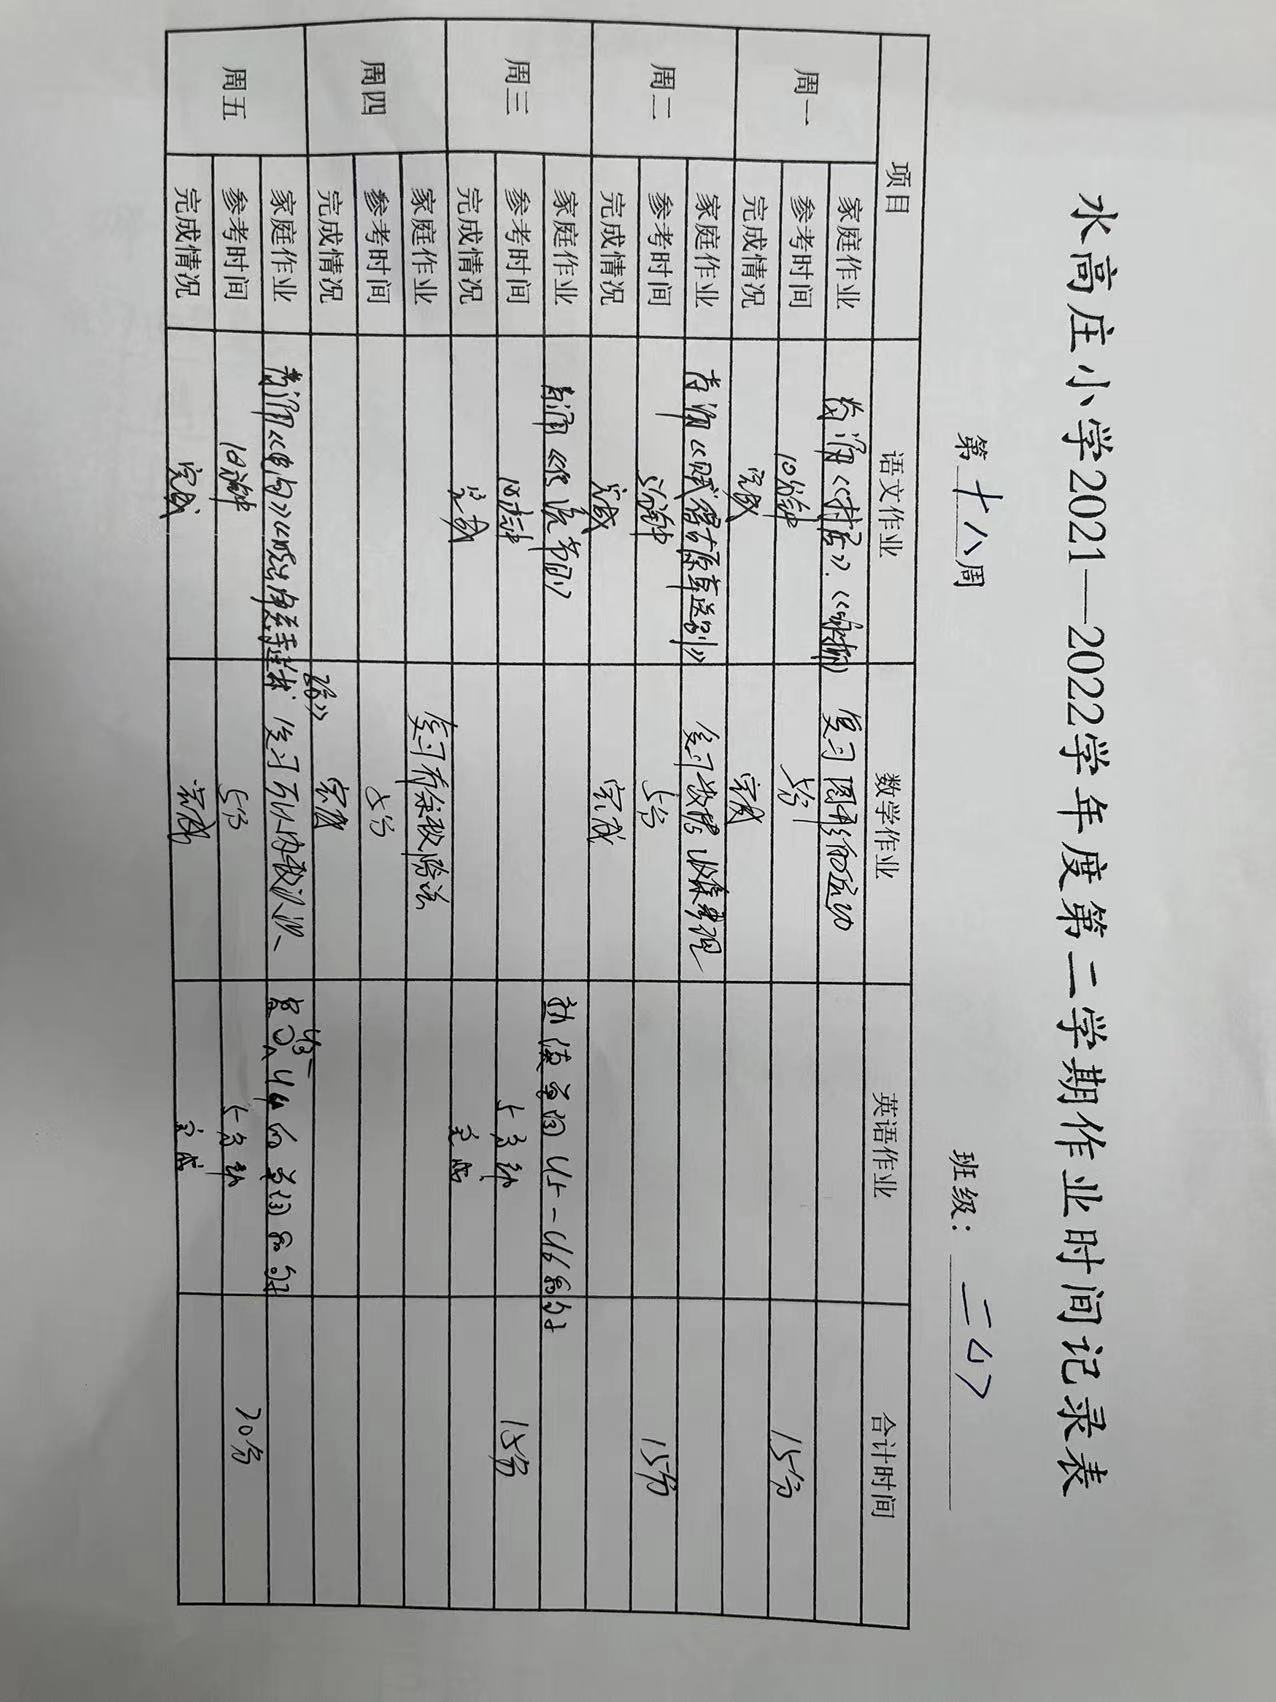 水高庄小学2021—2022学年度第二学期作业时间记录表
第十八周 班级：二（4）
项目 语文作业 数学作业 英语作业 合计时间
周一 家庭作业 背诵《村居》、《咏柳》 复习图形的运动
参考时间 10分钟 5分 15分
完成情况 完成 完成
周二 家庭作业 背诵《赋得古原草送别》 复习数据收集整理
参考时间 5分钟 5分 15分
完成情况 完成 完成
周三 家庭作业 背诵《传统节日》 热读单词U5-U6和句子
参考时间 10分钟 5分钟 15分
完成情况 完成 完成
周四 家庭作业 复习有余数除法
参考时间 5分
完成情况 完成
周五 家庭作业 背诵《绝句》《晓出净慈寺送林 复习万以内数认识
参考时间 10分钟 5分 5分钟 20分
完成情况 完成 完成 完成